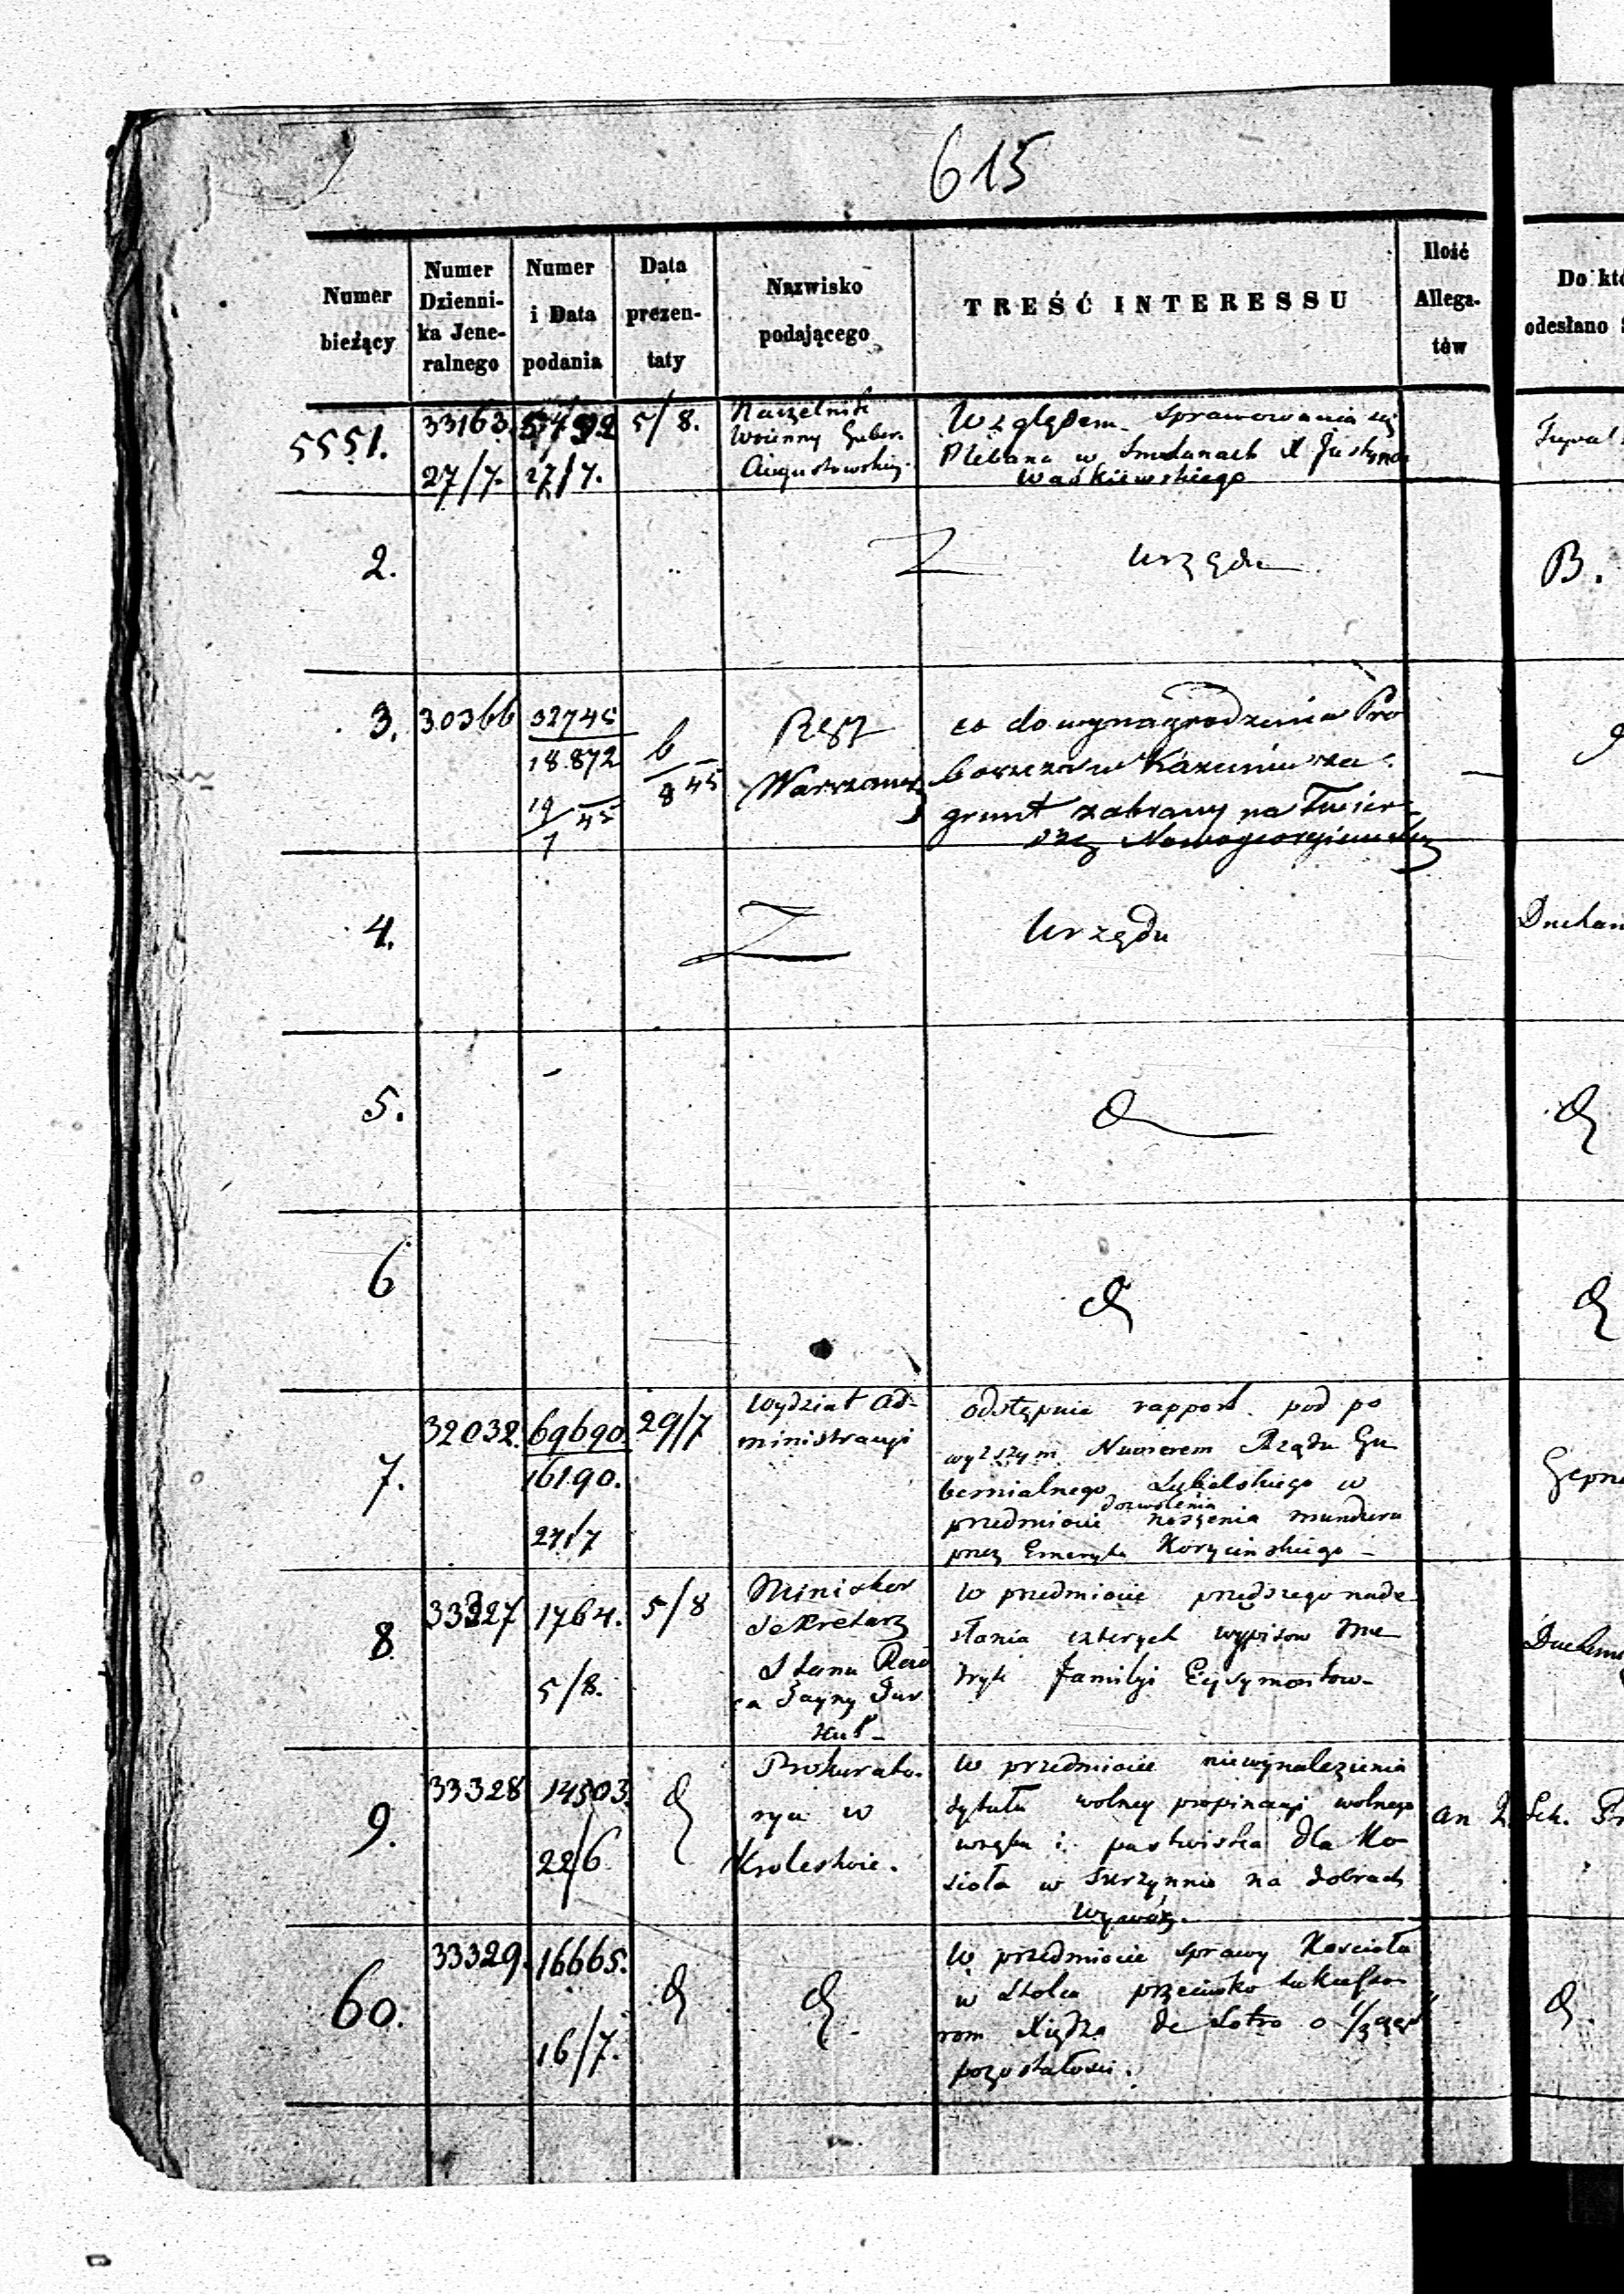 615
Numer bieżący
Numer Dzienni- ka Jene- ralnego
Numer i Data podania
Data prezen- taty
Nazwisko podającego
TREŚĆ INTERESSU
Ilość Allega- tów
Do któ
odesłano
5551.
33163.
27/7.
27/7.
5/8.
Naczelnik
Woienny Guber.
Augustowskiej.
Względem sprawowania się
Plebana w X Justyna
Waśkiewskiego
2.
Z urzędu
B.
3.
30366
32745
18.872
19/7 45
6/8 45
Rząd
Warszaws
co do wynagrodzenia Pro
boszczów Kazuniu za
grunt zabrany na Twier-
dzę Nowogeorgiewską
4.
Z Urzędu
Duchow
5.
6
7.
32032.
69690
16190.
27/7
29/7
Wydział Ad-
ministracyi
odstępuie rapport pod po
wyższym Numerem Rządu Gu
bernialnego Lubelskiego w
dozwolenia
przedmiocie noszenia munduru
przez Emeryta Korycińskiego
8.
33327
1764.
5/8.
5/8
Minister
Sekretarz
Stanu Rad
ca Tayny Tur
kuł
W przedmiocie prędszego nade
słania czterych wypisow Me
tryk Familyi Eysymontow
9.
33328
14503.
22/6
Prokurato-
rya w
Krolestwie.
W przedmiocie niewynalezienia
tytułu wolney propinacyi wolnego
wrębu i pastwiska dla Ko-
scioła w na dobrach
an 2
60.
33329.
16665.
16/7.
W przedmiocie sprawy Koscioła
w przeciwko Sukcesso-
rom Xiędza de o 1/3 częś
pozostałości.